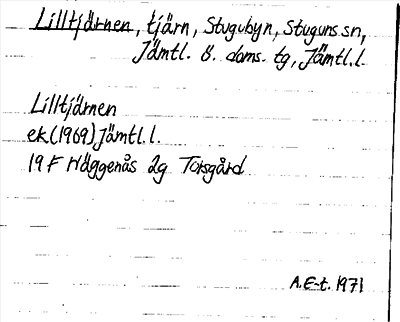 Lilltjärnen, tjärn, Stugubyn, Stuguns sn,
Jämtl. ö. doms. tg, Jämtl. l.
Lilltjärnen
ek (1969) Jämtl. l.
19 F Häggenås 2g Torsgård
A.E-t. 1971